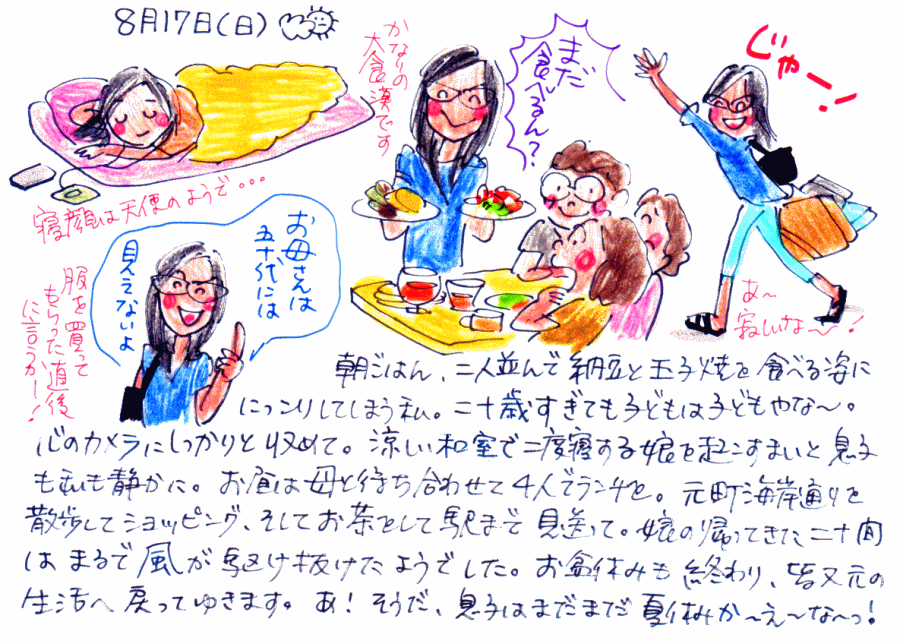 8月17日(日)
かなりの
大食漢です
まだ
食べるん?
じゃー!
寝顔は天使のようで・・・
お母さんは
五十代には
見えないよ
服を買って
もらった直後
に言うかー!
あ〜
寂しいな〜!
朝ごはん、二人並んで納豆と玉子焼を食べる姿に
にっこりしてしまう私。二十歳すぎても子どもは子どもやな〜。
心のカメラにしっかりと収めて。涼しい和室で二度寝する娘を起こすまいと息子
も私も静かに。お昼は母と待ち合わせて4人でランチを。元町海岸通りを
散歩してショッピング、そしてお茶をして駅まで見送って。娘の帰ってきた二十間
はまるで風が駆け抜けたようでした。お盆休みも終わり、皆又元の
生活へ戻ってゆきます。あ!そうだ、息子はまだまだ夏休みか〜え〜な〜っ!